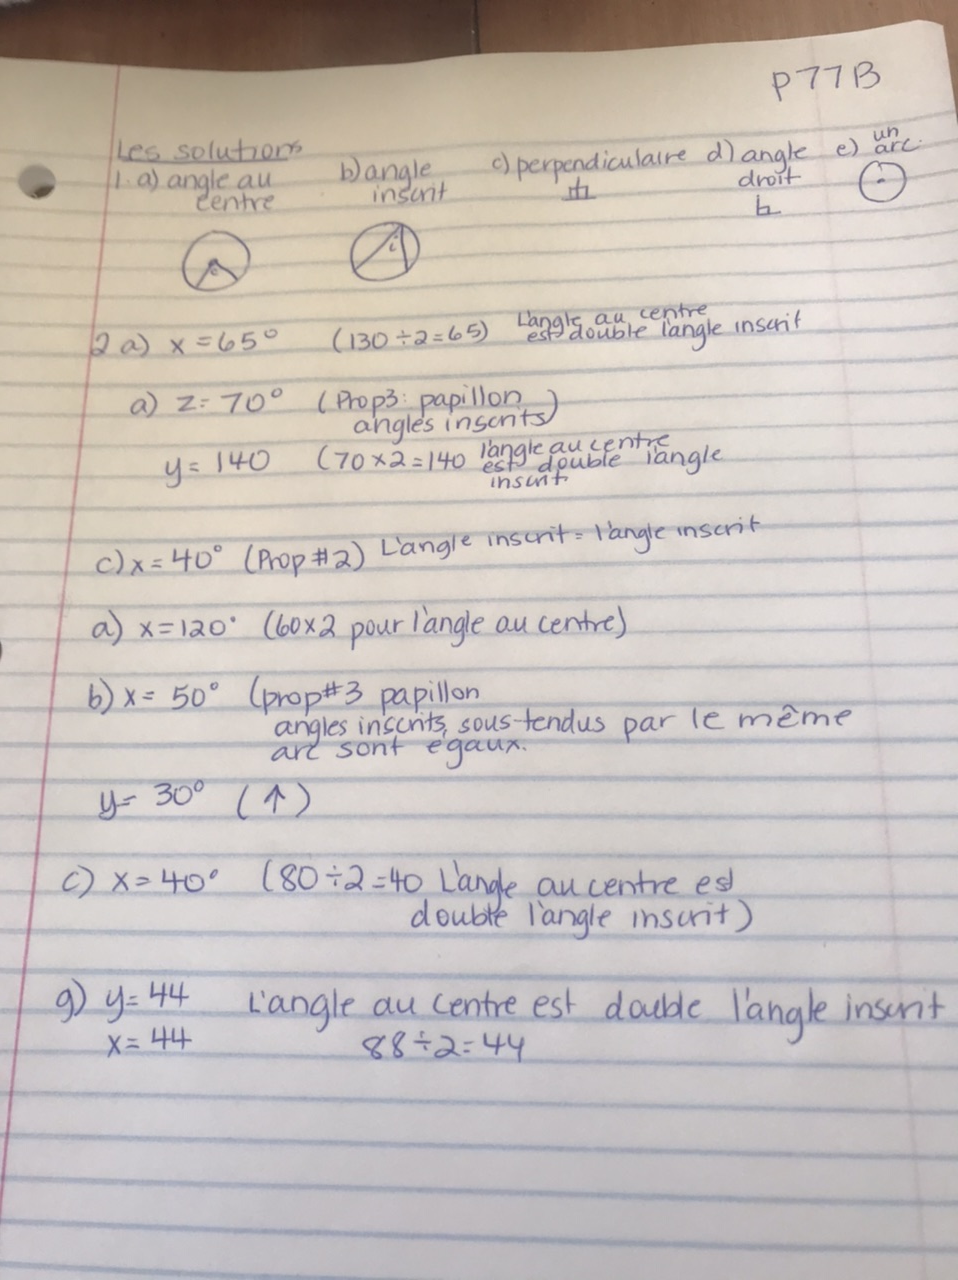 P77B
Les solutions
1. a) angle au centre
b) angle inscrit
c) perpendiculaire
d) angle droit
e) un arc.
2 a) x = 65° (130 ÷ 2 = 65) L'angle au centre
est double l'angle inscrit
a) z = 70° (Prop3: papillon
angles inscrits)
y = 140 (70 x 2 = 140 l'angle au centre
est double l'angle
inscrit.
c) x = 40° (Prop #2) L'angle inscrit = l'angle inscrit
a) x = 120° (60 x 2 pour l'angle au centre)
b) x = 50° (prop #3 papillon
angles inscrits, sous-tendus par le même
arc sont égaux.
y = 30° (↑)
c) x = 40° (80 ÷ 2 = 40 L'angle au centre est
double l'angle inscrit)
g) y = 44 L'angle au centre est double l'angle inscrit
x = 44 88 ÷ 2 = 44